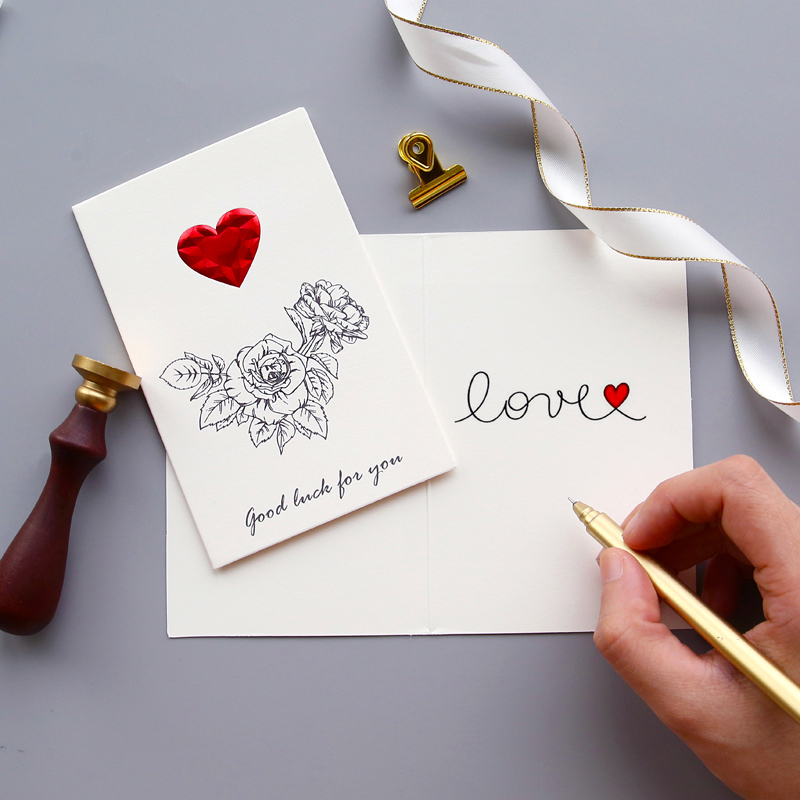 Good luck for you
love